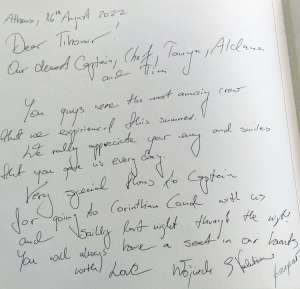 Athens, 16th August 2022
Dear Tihomir!
Our dearest Captain, Chef, Tonya, Aldana
and Tini
You guys were the most amazing crew
that we experienced this summer.
We really appreciate your energy and smiles
that you gave us every day.
Very special thanks to Captain
for going to Corinthian Canal with us
and sailing last night through the night
You will always have a seat in our hearts
with Love Wojciech &